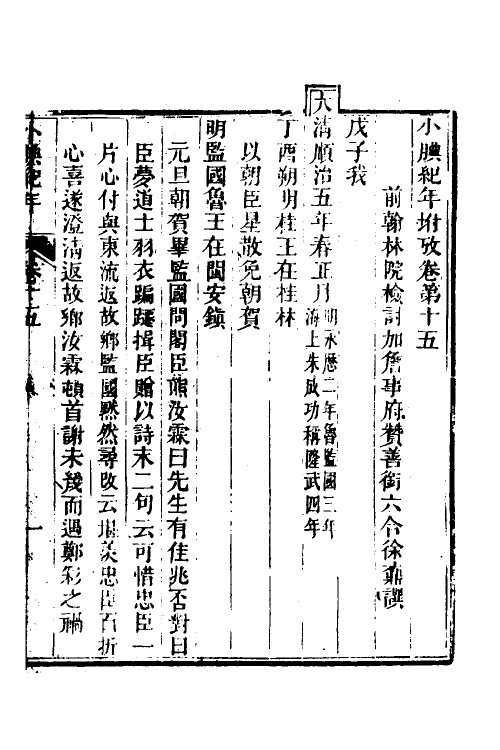 小腆紀年坿攷卷第十五
前翰林院檢討加詹事府贊善銜六合徐鼒譔
戊子我
大淸順治五年春正月明永歷二年魯監國三年海上朱成功稱隆武四年
丁酉朔明桂王在桂林
以朝臣星散免朝賀
明監國魯王在閩安鎭
元旦朝賀畢監國問閣臣熊汝霖曰先生有佳兆否對曰
臣夢道士羽衣蹁躚揖臣贈以詩末二句云可惜忠臣一
片心付與東流返故鄉監國黙然尋改云堪羨忠臣百折
心喜遂澄淸返故鄉汝霖頓首謝未幾而遇鄭彩之禍
小腆紀年 卷十五 一